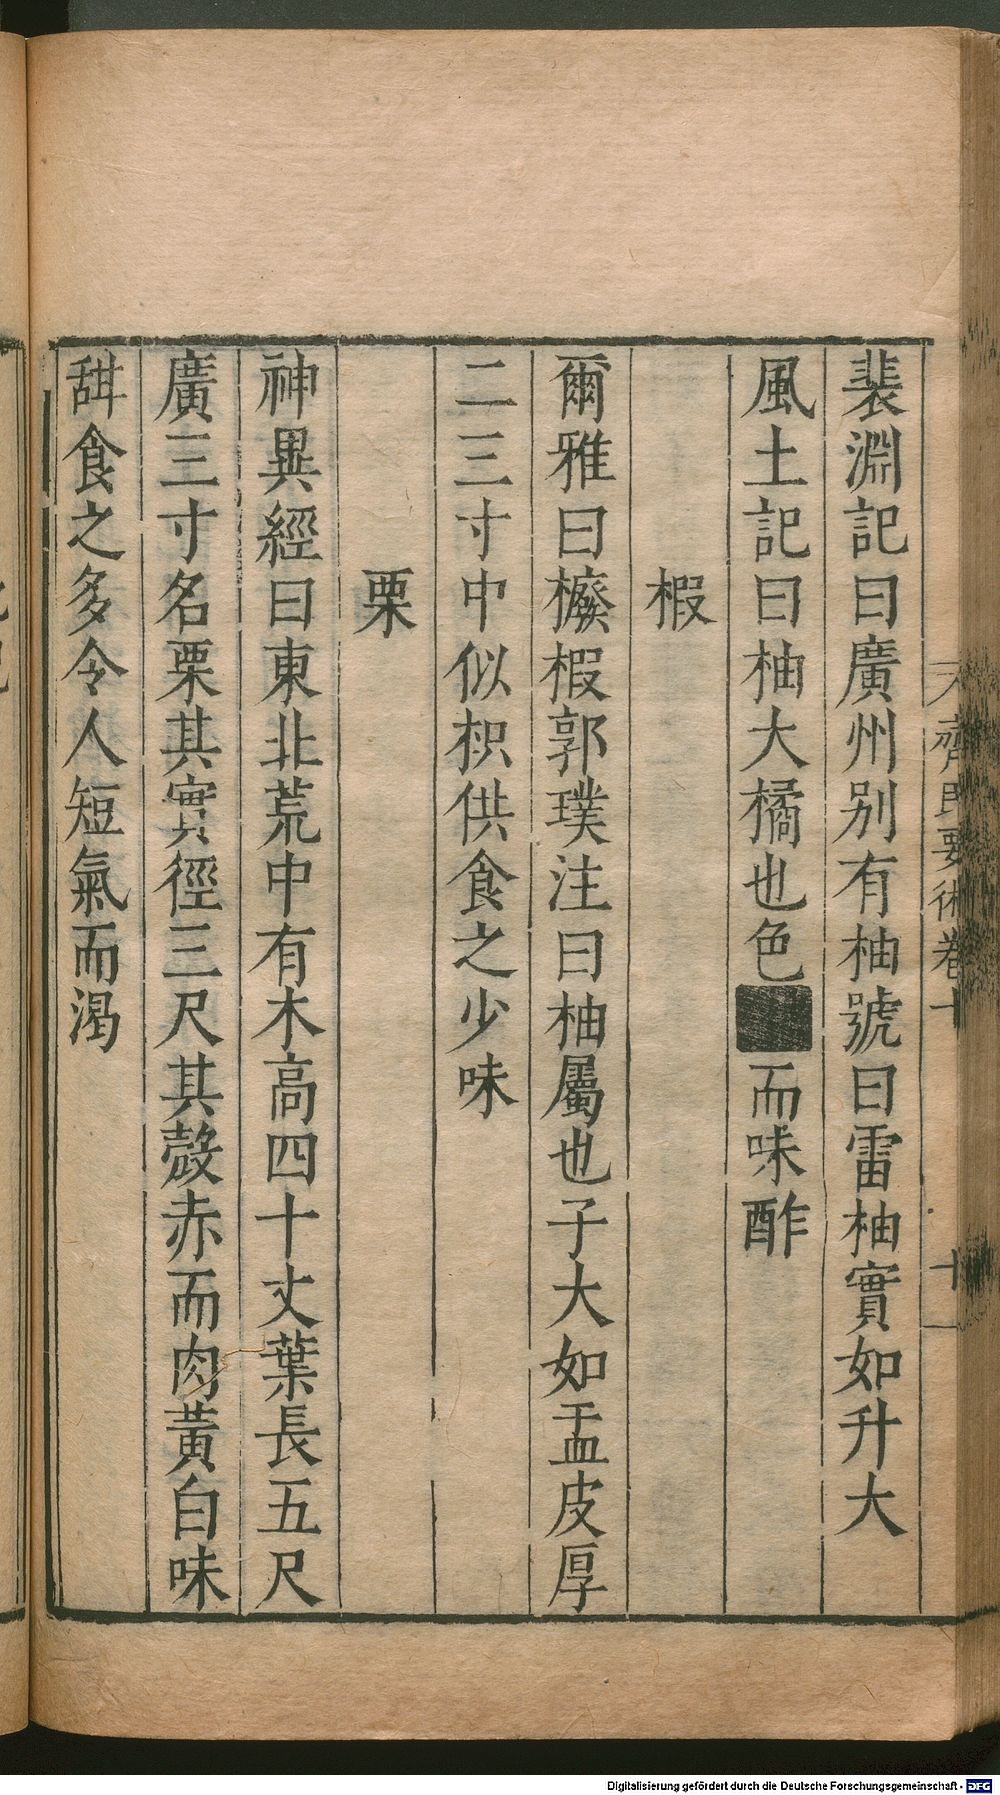 裴淵記曰廣州别有柚號曰雷柚實如升大
風土記曰柚大橘也色■而味酢
椵
爾雅曰櫠椵郭璞注曰柚屬也子大如盂皮厚
二三寸中似枳供食之少味
栗
神異經曰東北荒中有木高四十丈葉長五尺
廣三寸名栗其實徑三尺其殼赤而肉黃白味
甜食之多令人短氣而渴
齊民要術卷十
十一
Digitalisierung gefördert durch die Deutsche Forschungsgemeinschaft - DFG